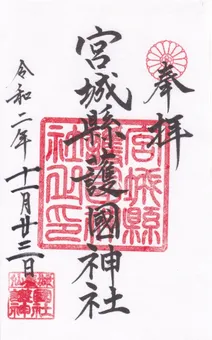 奉拝
宮城縣護國神社
令和二年十一月廿三日
宮城縣
護國神
社之印